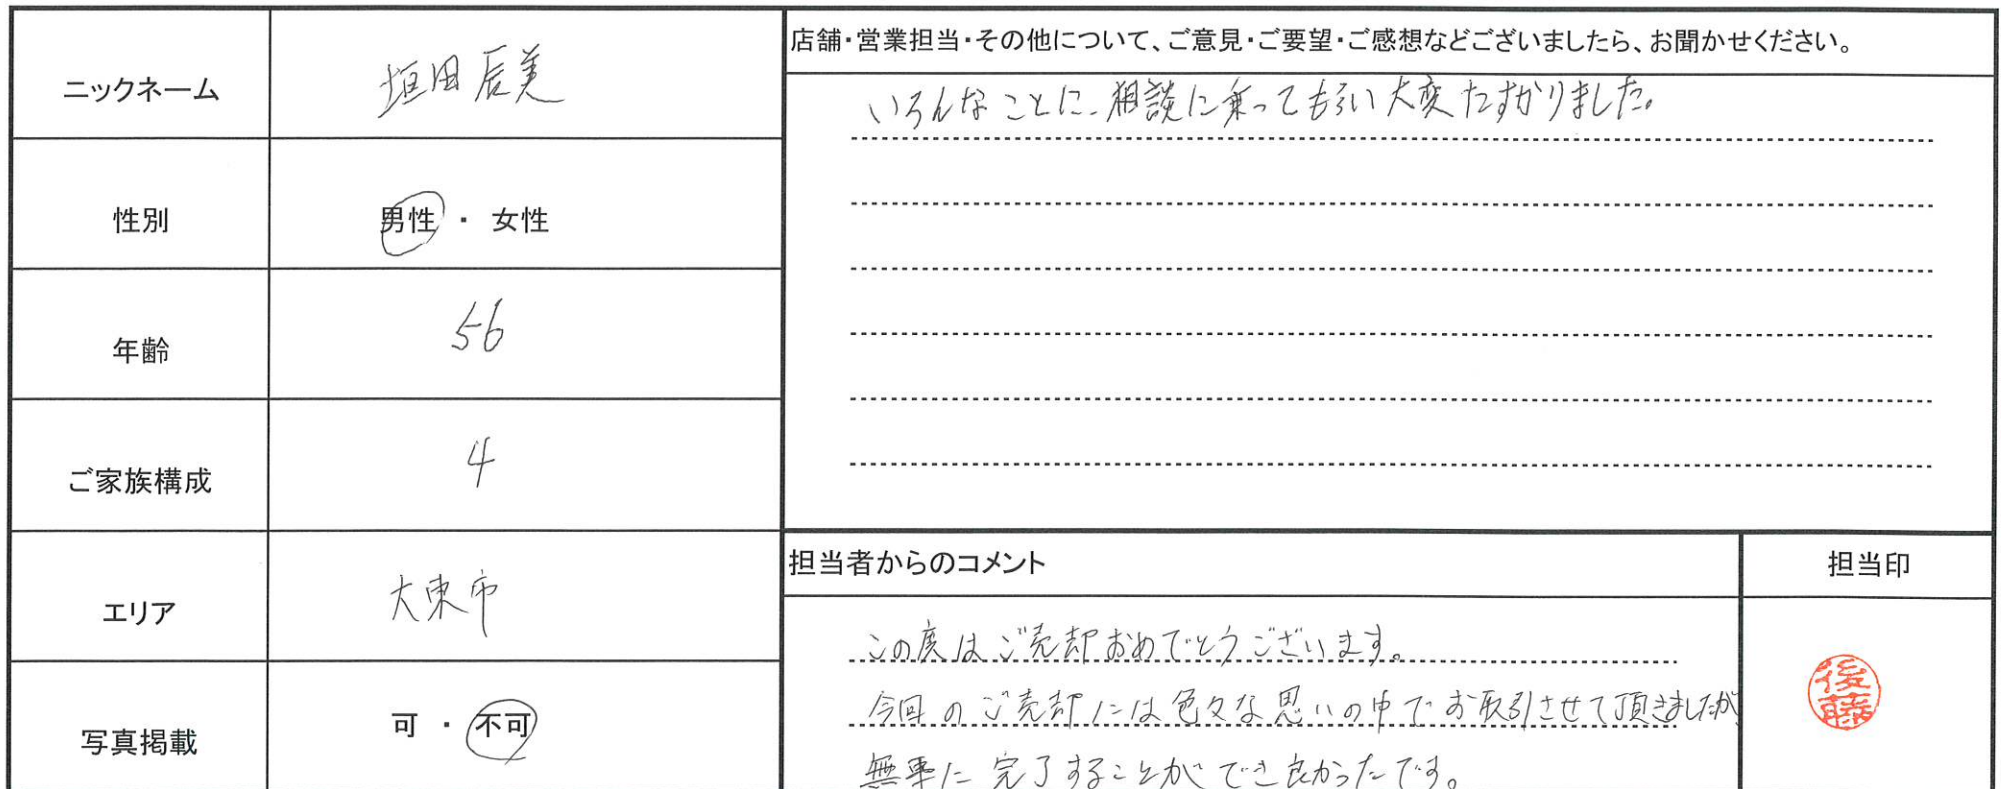 ニックネーム
垣田辰美
性別
男性 ・ 女性
年齢
56
ご家族構成
4
エリア
大東市
写真掲載
可 ・ 不可
店舗・営業担当・その他について、ご意見・ご要望・ご感想などございましたら、お聞かせください。
いろんなことに、相談に乗ってもらい大変たすかりました。
担当者からのコメント
この度はご売却おめでとうございます。
今回のご売却には色々な思いの中でお取引させて頂きましたが
無事に完了することができ良かったです。
担当印
後藤